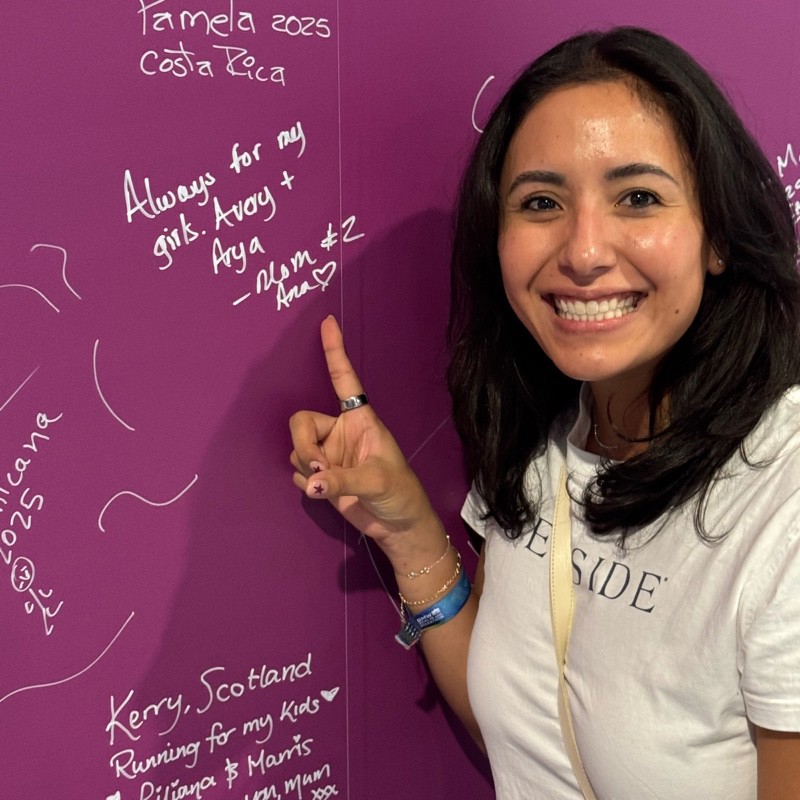 Pamela 2025
Costa Rica
Always for my
girls. Avory +
Arya
- Mom #2
Ana♡
2025
Kerry, Scotland
Running for my Kids♥
Liliana & Marris
Mum
xxx
SIDE